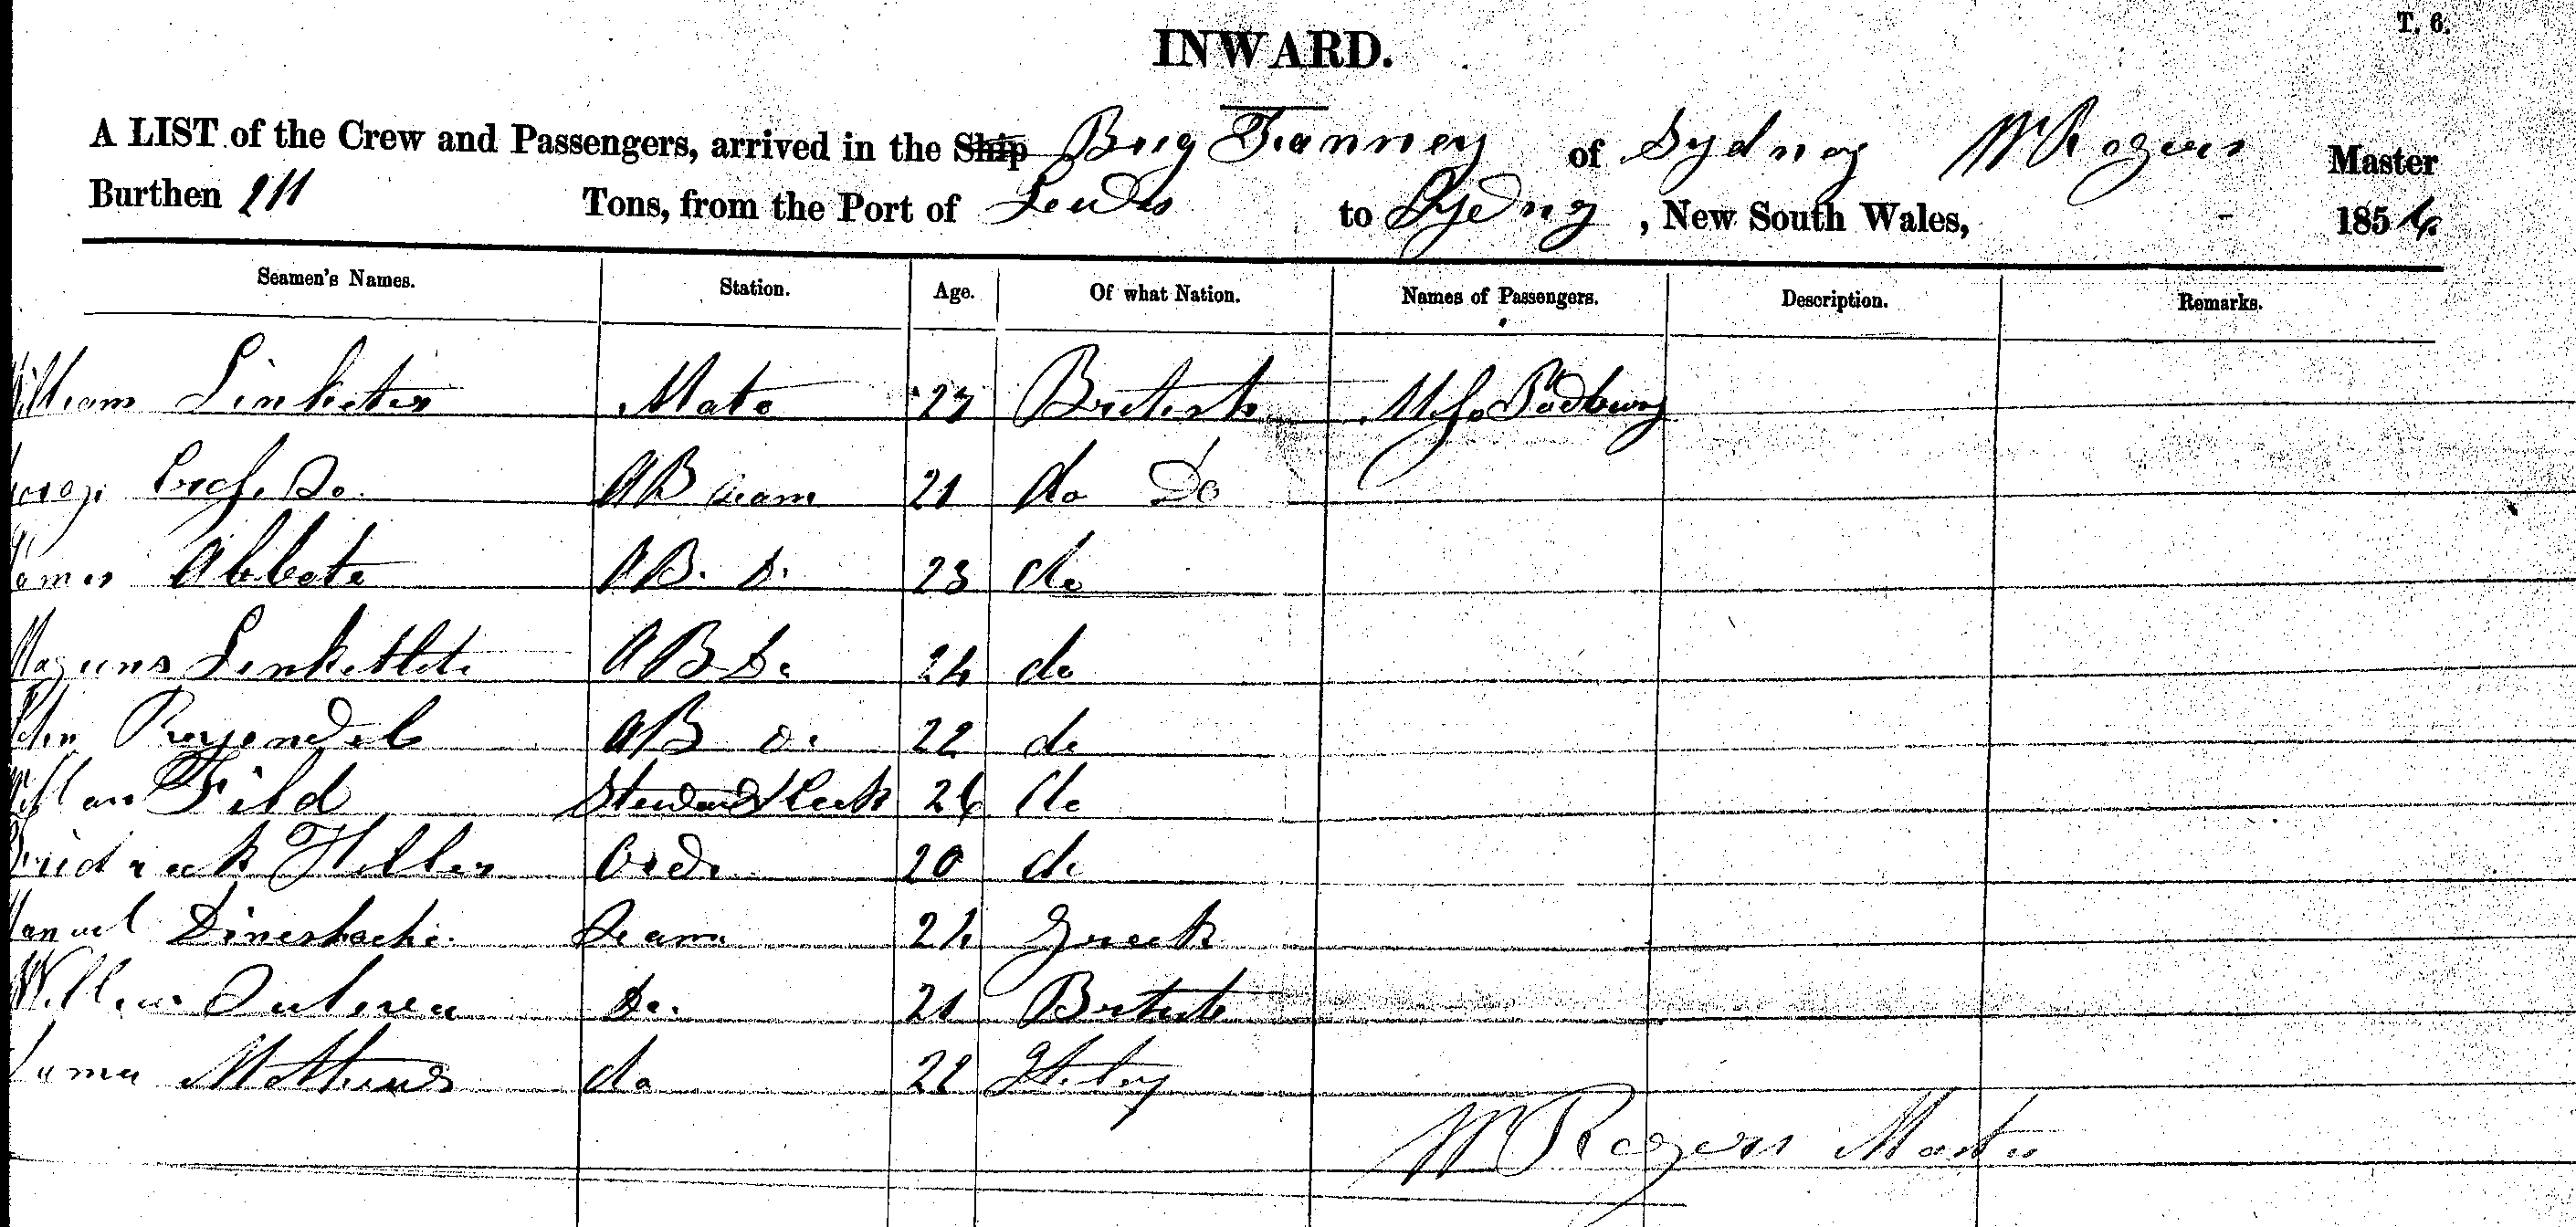 T. 6.
INWARD.
A LIST of the Crew and Passengers, arrived in the Ship Brig Fanney of Sydney W Rogers Master
Burthen 211 Tons, from the Port of to Sydny, New South Wales, 1856
Seamen's Names. Station. Age. Of what Nation. Names of Passengers. Description. Remarks.
William Linketer Mate 27 British Padbury
AB Seam 21 do Do
James Abbote AB. D. 23 do
Magnus AB Do 24 do
John AB D. 22 do
Fild Steward & Cook 26 do
Hiller Ord. 20 do
Manuel Seam 24 Greek
William Do. 21 British
James Mathews do 22 Italy
W Rogers Master